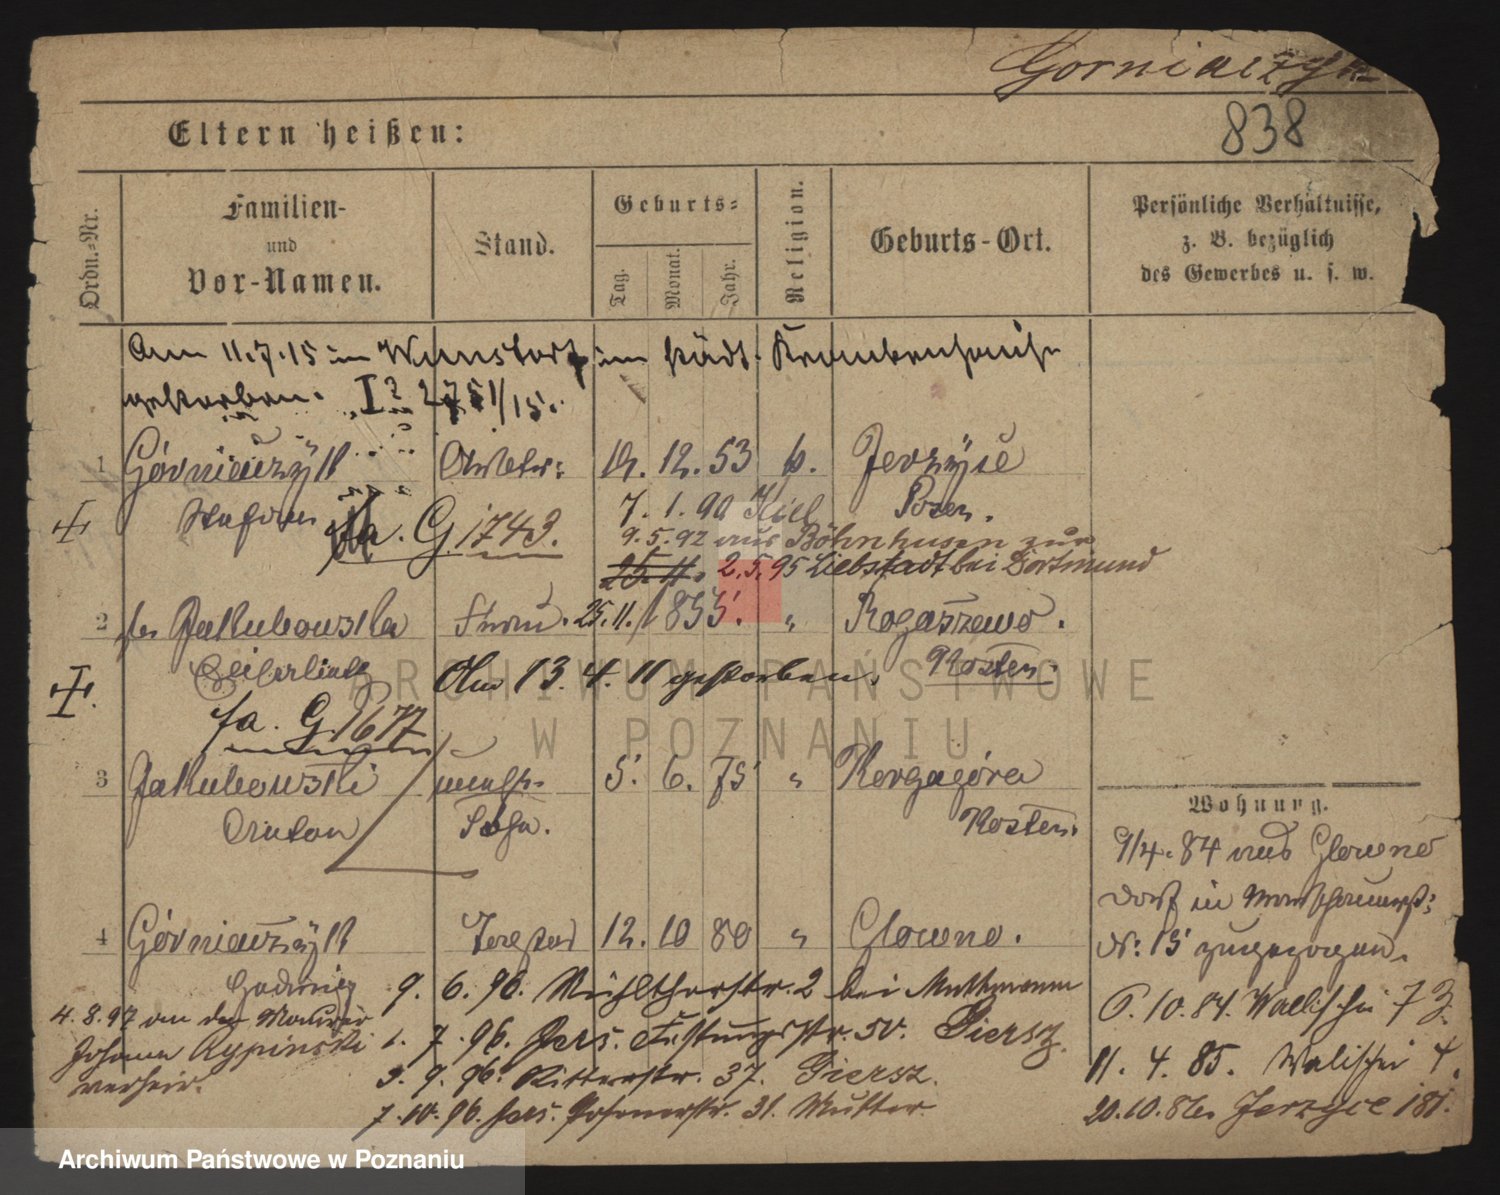 Gorniaczyk
838
Eltern heißen:
Ordn.-Nr.
Familien-
und
Vor-Namen.
Stand.
Geburts-
Tag.
Monat.
Jahr.
Religion.
Geburts-Ort.
Persönliche Verhältnisse,
z. B. bezüglich
des Gewerbes u. s. w.
Am 11.7.15 in Wunstorf im städt. Krankenhause
gestorben. 
1 Górniaczyk Arbeiter 12. 53 k. Jerzyce
Stefan 7. 1. 90 Kiel Posen.
fa. G. 1743.
9.5.92 aus Böhnhusen zur
2.5.95 Liebstadt bei Dortmund
2 Jakubowska Frau. 25. 11. 855. " Rogaszewo.
Kosten.
Am 13. 4. 11 gestorben.
fa. G. 1677
3 Jakubowski unehl. 5. 6. 75 " 
Anton Sohn. Kosten.
Wohnung.
9/4. 84 aus Glowno
Dorf in
Nr. 15 zugezogen.
4 Górniaczyk Tochter 12. 10 80 " Glowno.
Hedwig
9. 6. 96. Mühlthorstr. 2 bei Muthmann
10. 84. Wallischei 7
4.8.97 an den Maurer
Johann Rypinski
verheir.
1. 7. 96. Jers. Festungsstr. 50. Piersz.
11. 4. 85. Walischei 4.
3. 9. 96. Ritterstr. 37. Piersz.
7. 10. 96. Jers. Posenerstr. 31. Mutter
20.10.86. Jerzyce 181.
ARCHIWUM PAŃSTWOWE
W POZNANIU
Archiwum Państwowe w Poznaniu